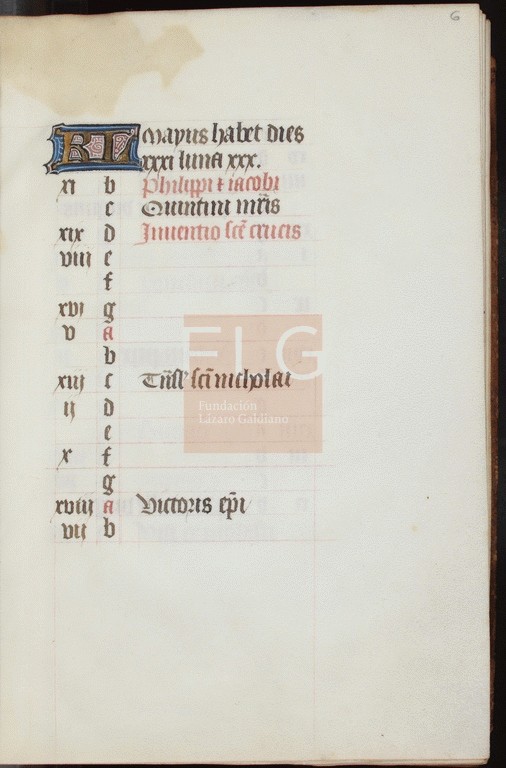 6
KL Mayus habet dies
xxxi luna xxx.
xi b Philippi ⁊ iacobi
c Quintini mr̃is
xix d Inuentio scẽ crucis
viii e
f
xvi g
v a
b
xiii c Tñsl' scĩ nicholai
ii d
e
x f
g
xviii a Victoris ep̃i
vii b
FLG
Fundación
Lázaro Galdiano